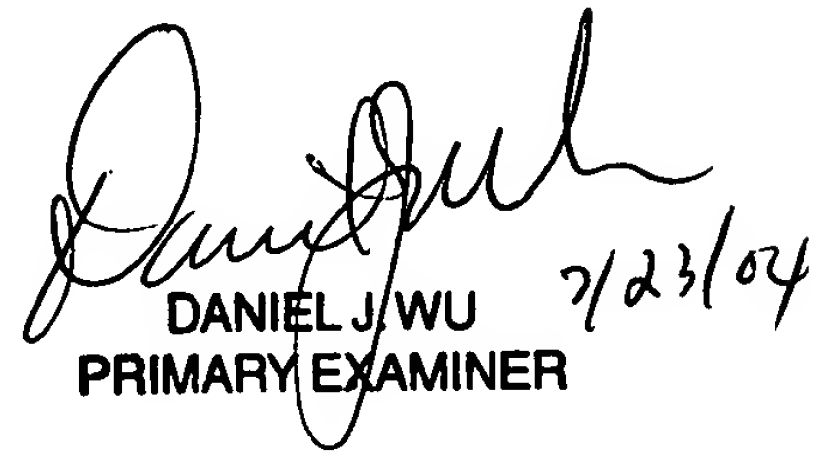 Daniel J. Wu 7/23/04
DANIEL J. WU
PRIMARY EXAMINER